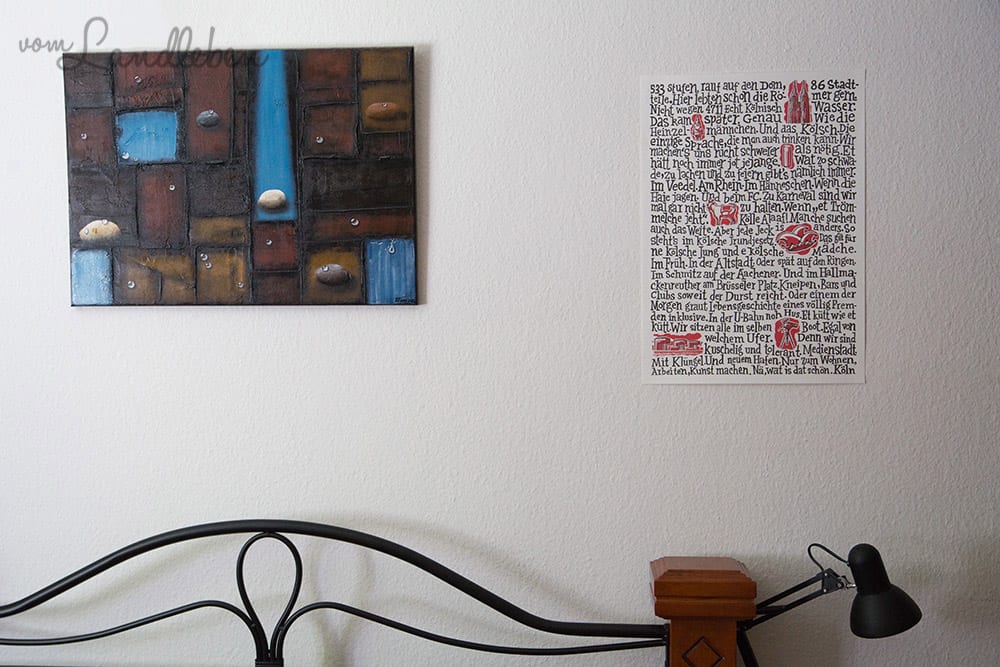 vom Landleben
533 Stufen, rauf auf den Dom, 86 Stadt-
teile. Hier lebten schon die Rö- mer gern.
Nicht wegen 4711 Echt Kölnisch Wasser.
Das kam später. Genau Wie die
Heinzel- männchen. Und das Kölsch. Die
einzige Sprache, die man auch trinken kann. Wir
machen's uns nicht schwerer als nötig. Et
hätt noch immer jot jejange. Wat zo schwa-
de, zu lachen und zu feiern gibt's nämlich immer.
Im Veedel. Am Rhein. Im Hänneschen. Wenn die
Haie jagen. Und beim FC. Zu Karneval sind wir
mal gar nicht zu halten. Wenn „et Tröm-
melche jeht". Kölle Alaaf! Manche suchen
auch das Weite. Aber jede Jeck is anders. So
steht's im Kölsche Jrundjesetz. Das gilt für
ne Kölsche Jung und e Kölsche Mädche.
Im Früh. In der Altstadt. Oder spät auf den Ringen.
Im Schmitz auf der Aachener. Und im Hallma-
ckenreuther am Brüsseler Platz. Kneipen, Bars und
Clubs soweit der Durst reicht. Oder einem der
Morgen graut. Lebensgeschichte eines völlig Frem-
den inklusive. In der U-Bahn noh Hus. Et kütt wie et
kütt. Wir sitzen alle im selben Boot. Egal von
welchem Ufer. Denn wir sind
kuschelig und tolerant. Medienstadt
Mit Klüngel. Und neuem Hafen. Nur zum Wohnen,
Arbeiten, Kunst machen. Nä, wat is dat schön. Köln